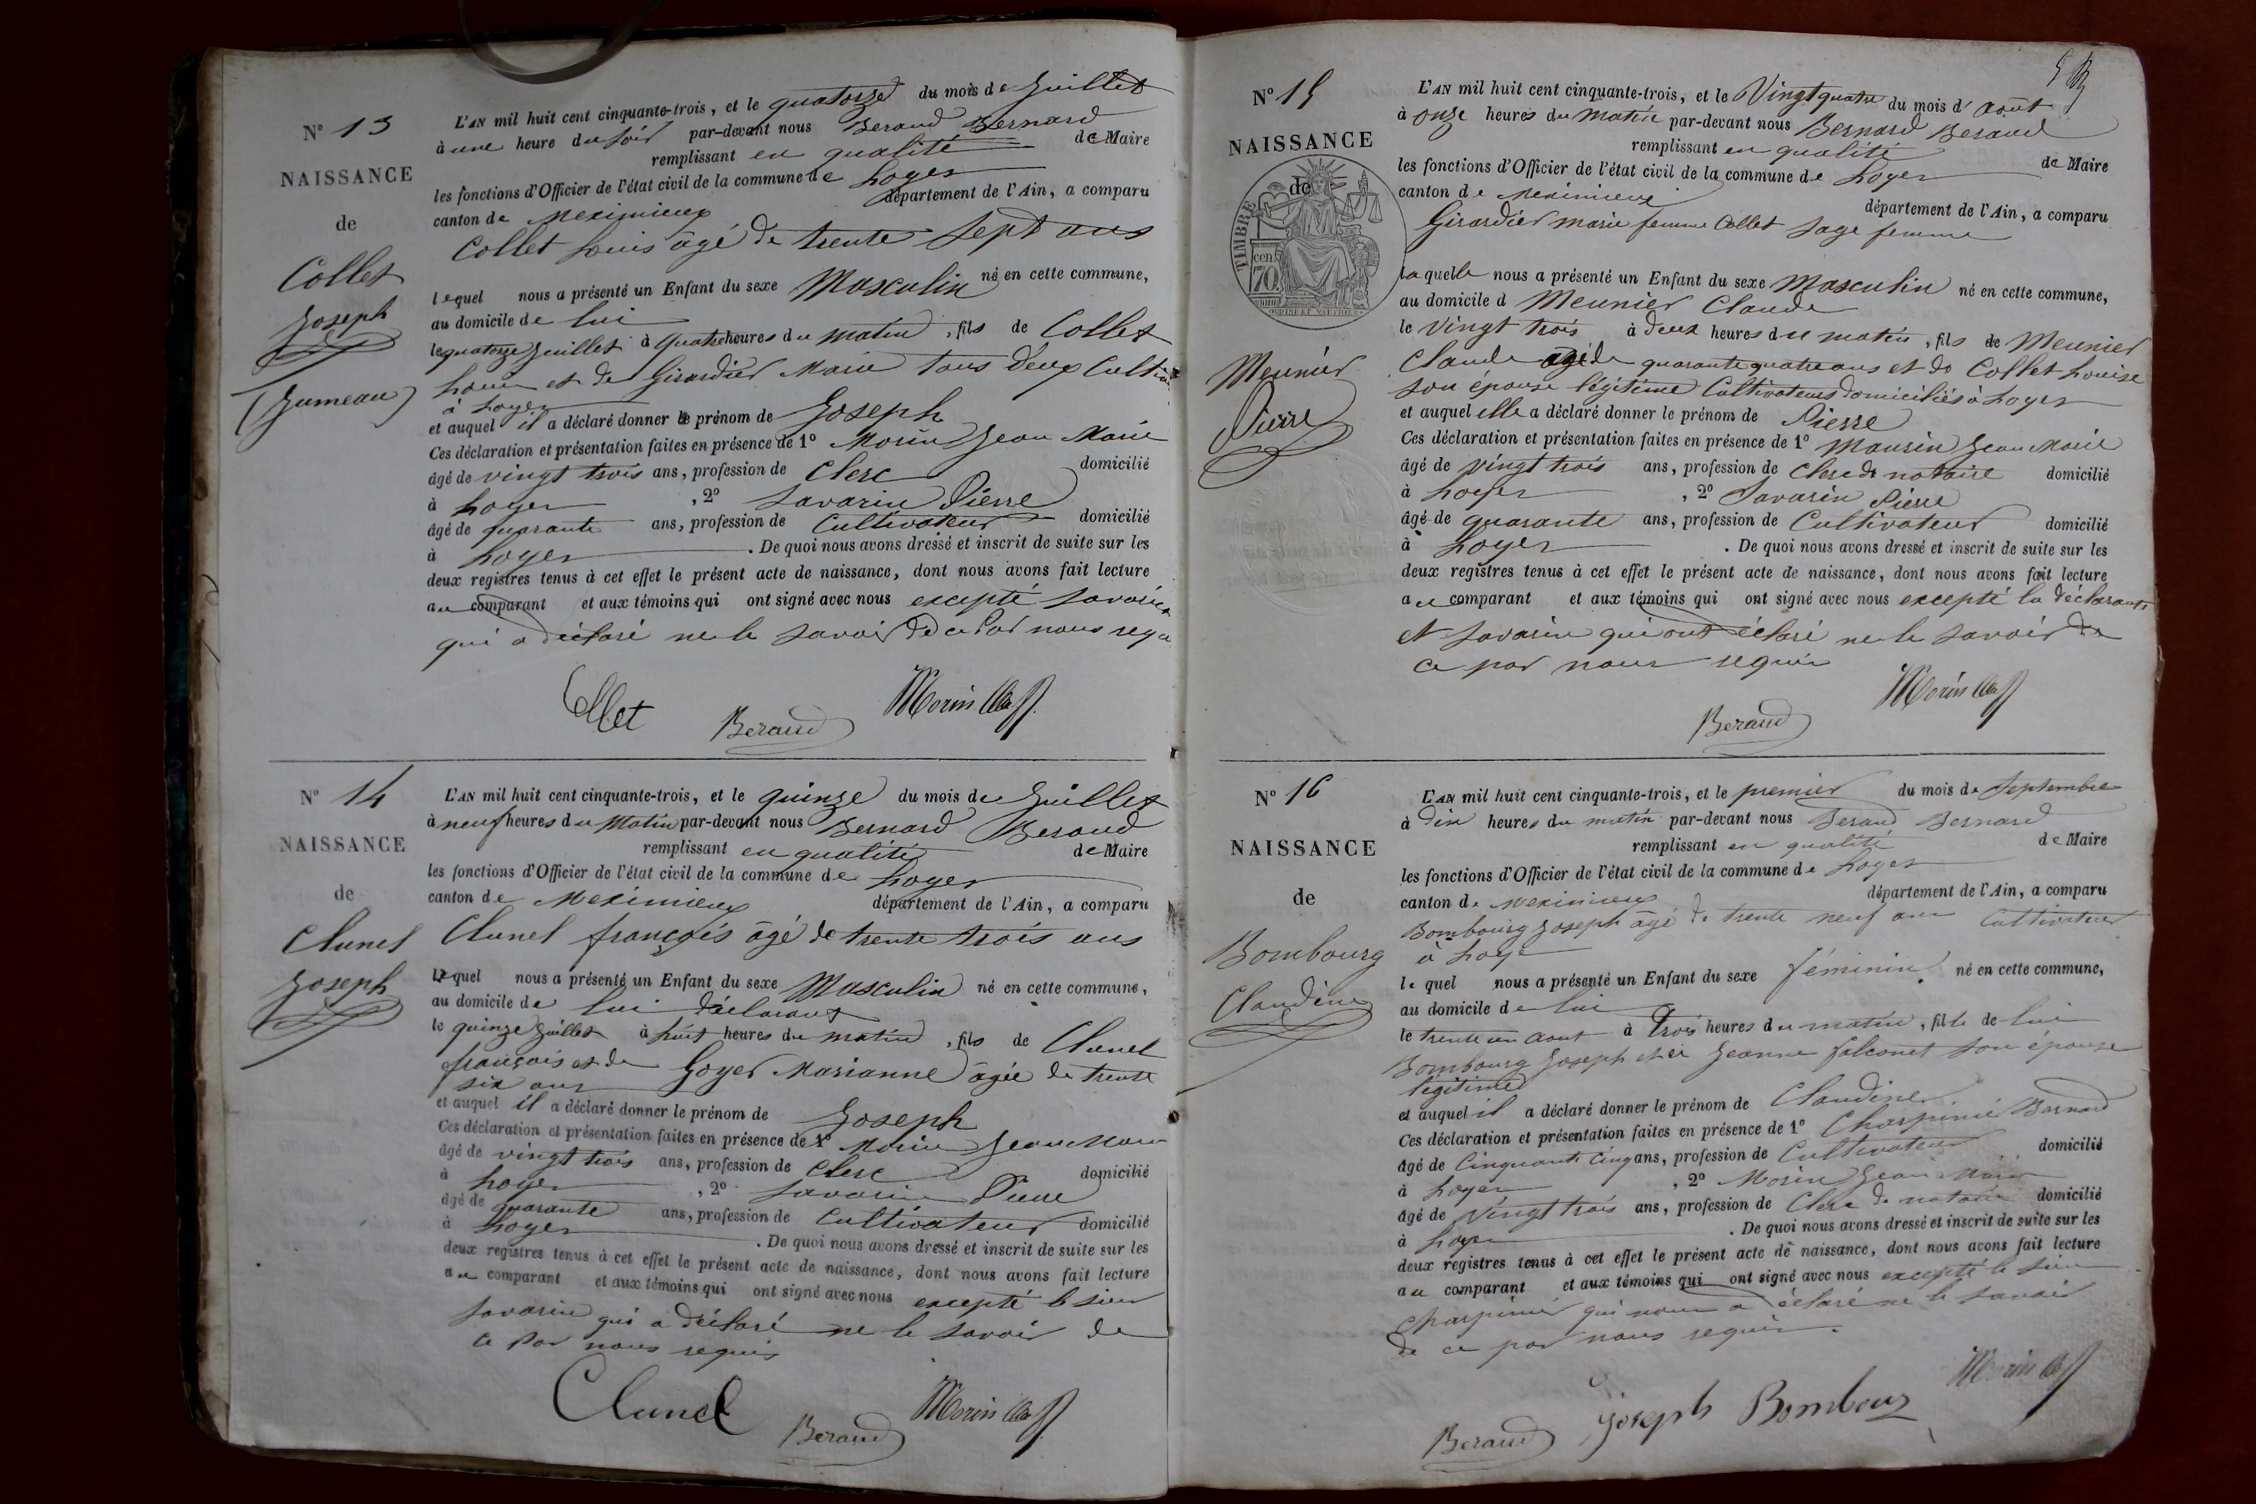 N° 13
NAISSANCE
de
Collet
Joseph
(Jumeau)
L'AN mil huit cent cinquante-trois, et le quatorze du mois de Juillet
à une heure du soir par-devant nous Beraud Bernard
remplissant en qualité de Maire
les fonctions d'Officier de l'état civil de la commune de Loyes
canton de Meximieux département de l'Ain, a comparu
Collet Louis âgé de trente sept ans
lequel nous a présenté un Enfant du sexe Masculin né en cette commune,
au domicile de lui
le quatorze Juillet à quatre heures du matin, fils de Collet
Louis et de Girardier Marie tous deux
à Loyes
et auquel il a déclaré donner le prénom de Joseph
Ces déclaration et présentation faites en présence de 1° Morin Jean Marie
âgé de vingt trois ans, profession de Clerc domicilié
à Loyes, 2° Savarin Pierre
âgé de quarante ans, profession de Cultivateur domicilié
à Loyes. De quoi nous avons dressé et inscrit de suite sur les
deux registres tenus à cet effet le présent acte de naissance, dont nous avons fait lecture
au comparant et aux témoins qui ont signé avec nous excepté Savarin
qui a déclaré ne le savoir de ce par nous
Collet Beraud Morin
N° 14
NAISSANCE
de
Clunel
Joseph
L'AN mil huit cent cinquante-trois, et le quinze du mois de Juillet
à neuf heures du Matin par-devant nous Bernard Beraud
remplissant en qualité de Maire
les fonctions d'Officier de l'état civil de la commune de Loyes
canton de Meximieux département de l'Ain, a comparu
Clunel françois âgé de trente trois ans
lequel nous a présenté un Enfant du sexe Masculin né en cette commune,
au domicile de lui déclarant
le quinze Juillet à huit heures du matin, fils de Clunel
françois et de Goyet Marianne âgée de trente
six ans
et auquel il a déclaré donner le prénom de Joseph
Ces déclaration et présentation faites en présence de 1° Morin Jean Marie
âgé de vingt trois ans, profession de Clerc domicilié
à Loyes, 2° Savarin Pierre
âgé de quarante ans, profession de Cultivateur domicilié
à Loyes. De quoi nous avons dressé et inscrit de suite sur les
deux registres tenus à cet effet le présent acte de naissance, dont nous avons fait lecture
au comparant et aux témoins qui ont signé avec nous excepté le sieur
Savarin qui a déclaré ne le savoir de
ce par nous requis
Clunel Beraud Morin
N° 15
NAISSANCE
de
TIMBRE
cen.
70
Meunier
Pierre
L'AN mil huit cent cinquante-trois, et le Vingt quatre du mois d'août
à onze heures du matin par-devant nous Bernard Beraud
remplissant en qualité de Maire
les fonctions d'Officier de l'état civil de la commune de Loyes
canton de Meximieux département de l'Ain, a comparu
Girardier marie femme Collet sage femme
laquelle nous a présenté un Enfant du sexe Masculin né en cette commune,
au domicile d Meunier Claude
le vingt trois à deux heures du matin, fils de Meunier
Claude agé de quarante quatre ans et de Collet Louise
son épouse légitime Cultivateurs domiciliés à Loyes
et auquel elle a déclaré donner le prénom de Pierre
Ces déclaration et présentation faites en présence de 1° Maurin Jean Marie
âgé de vingt trois ans, profession de Clerc de notaire domicilié
à Loyes, 2° Savarin Pierre
âgé de quarante ans, profession de Cultivateur domicilié
à Loyes. De quoi nous avons dressé et inscrit de suite sur les
deux registres tenus à cet effet le présent acte de naissance, dont nous avons fait lecture
au comparant et aux témoins qui ont signé avec nous excepté la déclarante
et Savarin qui ont déclaré ne le savoir de
ce par nous requis
Beraud Morin
N° 16
NAISSANCE
de
Bombourg
Claudine
L'AN mil huit cent cinquante-trois, et le premier du mois de Septembre
à dix heures du matin par-devant nous Beraud Bernard
remplissant en qualité de Maire
les fonctions d'Officier de l'état civil de la commune de Loyes
canton de Meximieux département de l'Ain, a comparu
Bombourg Joseph âgé de trente neuf ans Cultivateur
à Loyes
lequel nous a présenté un Enfant du sexe féminin né en cette commune,
au domicile de lui
le trente un aout à trois heures du matin, fille de lui
Bombourg Joseph et de Jeanne falconet son épouse
légitime
et auquel il a déclaré donner le prénom de Claudine
Ces déclaration et présentation faites en présence de 1° Charpinié Bernard
âgé de Cinquante cinq ans, profession de Cultivateur domicilié
à Loyes, 2° Morin Jean Marie
âgé de vingt trois ans, profession de Clerc de notaire domicilié
à Loyes. De quoi nous avons dressé et inscrit de suite sur les
deux registres tenus à cet effet le présent acte de naissance, dont nous avons fait lecture
au comparant et aux témoins qui ont signé avec nous excepté le sieur
Charpinié qui nous a déclaré ne le savoir
de ce par nous requis.
Beraud Joseph Bombour Morin